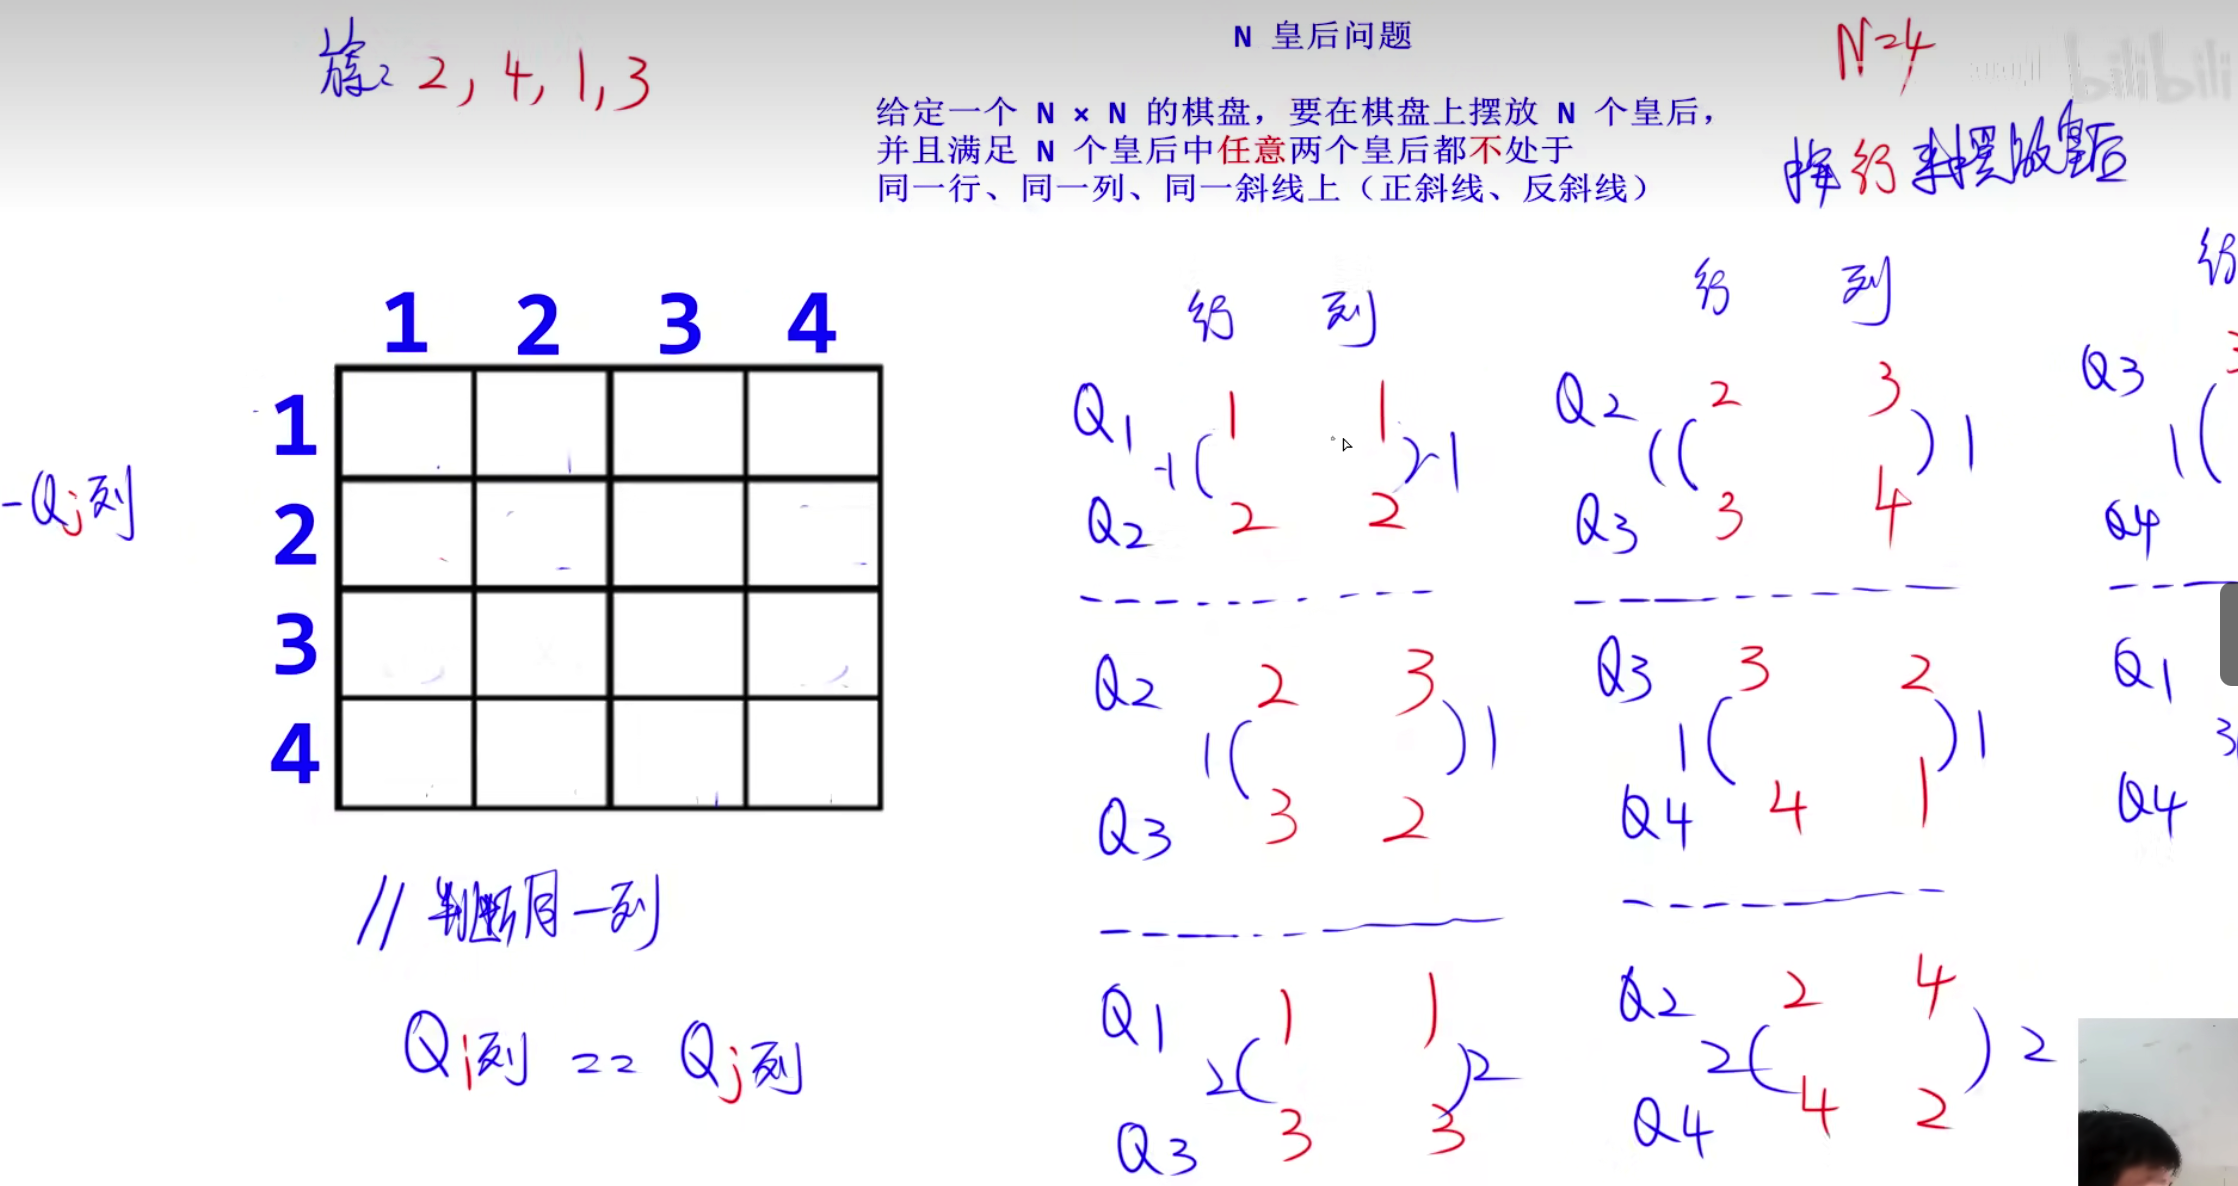 N 皇后问题
N=4
bilibili
2, 4, 1, 3
给定一个 N × N 的棋盘，要在棋盘上摆放 N 个皇后，
并且满足 N 个皇后中任意两个皇后都不处于
同一行、同一列、同一斜线上（正斜线、反斜线）
按行来摆放皇后
1 2 3 4
1
2
3
4
-Qj列
// 判断同一列
Qi列 == Qj列
行 列
Q1 1 1
-1( )-1
Q2 2 2
Q2 2 3
1( )1
Q3 3 2
Q1 1 1
2( )2
Q3 3 3
行 列
Q2 2 3
1( )1
Q3 3 4
Q3 3 2
1( )1
Q4 4 1
Q2 2 4
2( )2
Q4 4 2
行
Q3 3
1(
Q4
Q1
3
Q4